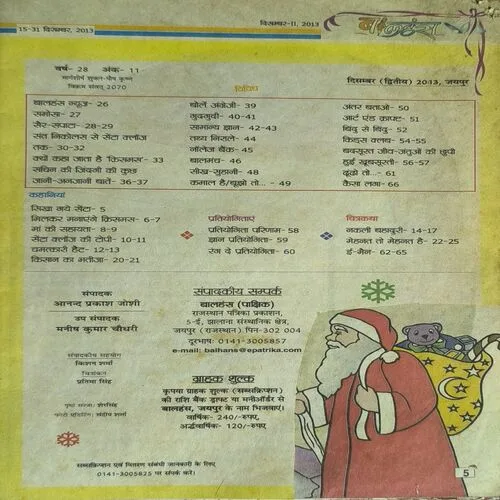 15-31 दिसम्बर, 2013
दिसम्बर-II, 2013
बालहंस
वर्ष- 28 अंक- 11
मार्गशीर्ष शुक्ल-पौष कृष्ण
विक्रम संवत् 2070
दिसम्बर (द्वितीय) 2013, जयपुर
विविध
बालहंस न्यूज- 26
समोसा- 27
सैर-सपाटा- 28-29
संत निकोलस से सेंटा क्लॉज
तक- 30-32
क्यों कहा जाता है 'किसमस' 33
सचिन की जिंदगी की कुछ
जानी-अनजानी बातें- 36-37
बोलें अंग्रेजी- 39
गुदगुदी- 40-41
सामान्य ज्ञान- 42-43
तथ्य निराले- 44
नॉलेज बैंक- 45
बालमंच- 46
सीख-सुहानी- 48
कमाल है/बूझो तो... - 49
अंतर बताओ- 50
आर्ट एंड क्राफ्ट- 51
बिंदु से बिंदु- 52
किड्स क्लब- 54-55
बदसूरत जीव-जंतुओं की छुपी
हुई खूबसूरती- 56-57
ढूंढो तो...- 61
कैसा लगा- 66
कहानियां
सिखा गये सेंटा- 5
मिलकर मनाएंगे क्रिसमस- 6-7
मां की सहायता- 8-9
सेंटा क्लॉज की टोपी- 10-11
चमत्कारी हैट- 12-13
किसान का भतीजा- 20-21
प्रतियोगिताएं
प्रतियोगिता परिणाम- 58
ज्ञान प्रतियोगिता- 59
रंग दे प्रतियोगिता- 60
चित्रकथा
नकली बहादुरी- 14-17
मेहनत तो मेहनत है- 22-25
ई-मैन- 62-65
संपादक
आनन्द प्रकाश जोशी
उप संपादक
मनीष कुमार चौधरी
संपादकीय सहयोग
किशन शर्मा
चित्रांकन
प्रतिमा सिंह
पृष्ठ सज्जा: शेरसिंह
फोटो एडिटिंग: संदीप शर्मा
संपादकीय सम्पर्क
बालहंस (पाक्षिक)
राजस्थान पत्रिका प्रकाशन,
5-ई, झालाना संस्थानिक क्षेत्र,
जयपुर (राजस्थान) पिन-302 004
दूरभाष: 0141-3005857
e-mail: balhans@epatrika.com
ग्राहक शुल्क
कृपया ग्राहक शुल्क (सब्सक्रिप्शन)
की राशि बैंक ड्राफ्ट या मनीऑर्डर से
बालहंस, जयपुर के नाम भिजवाएं।
वार्षिक- 240/-रुपए,
अर्द्धवार्षिक- 120/-रुपए
सब्सक्रिप्शन एवं वितरण संबंधी जानकारी के लिए
0141-3005825 पर संपर्क करें।
5